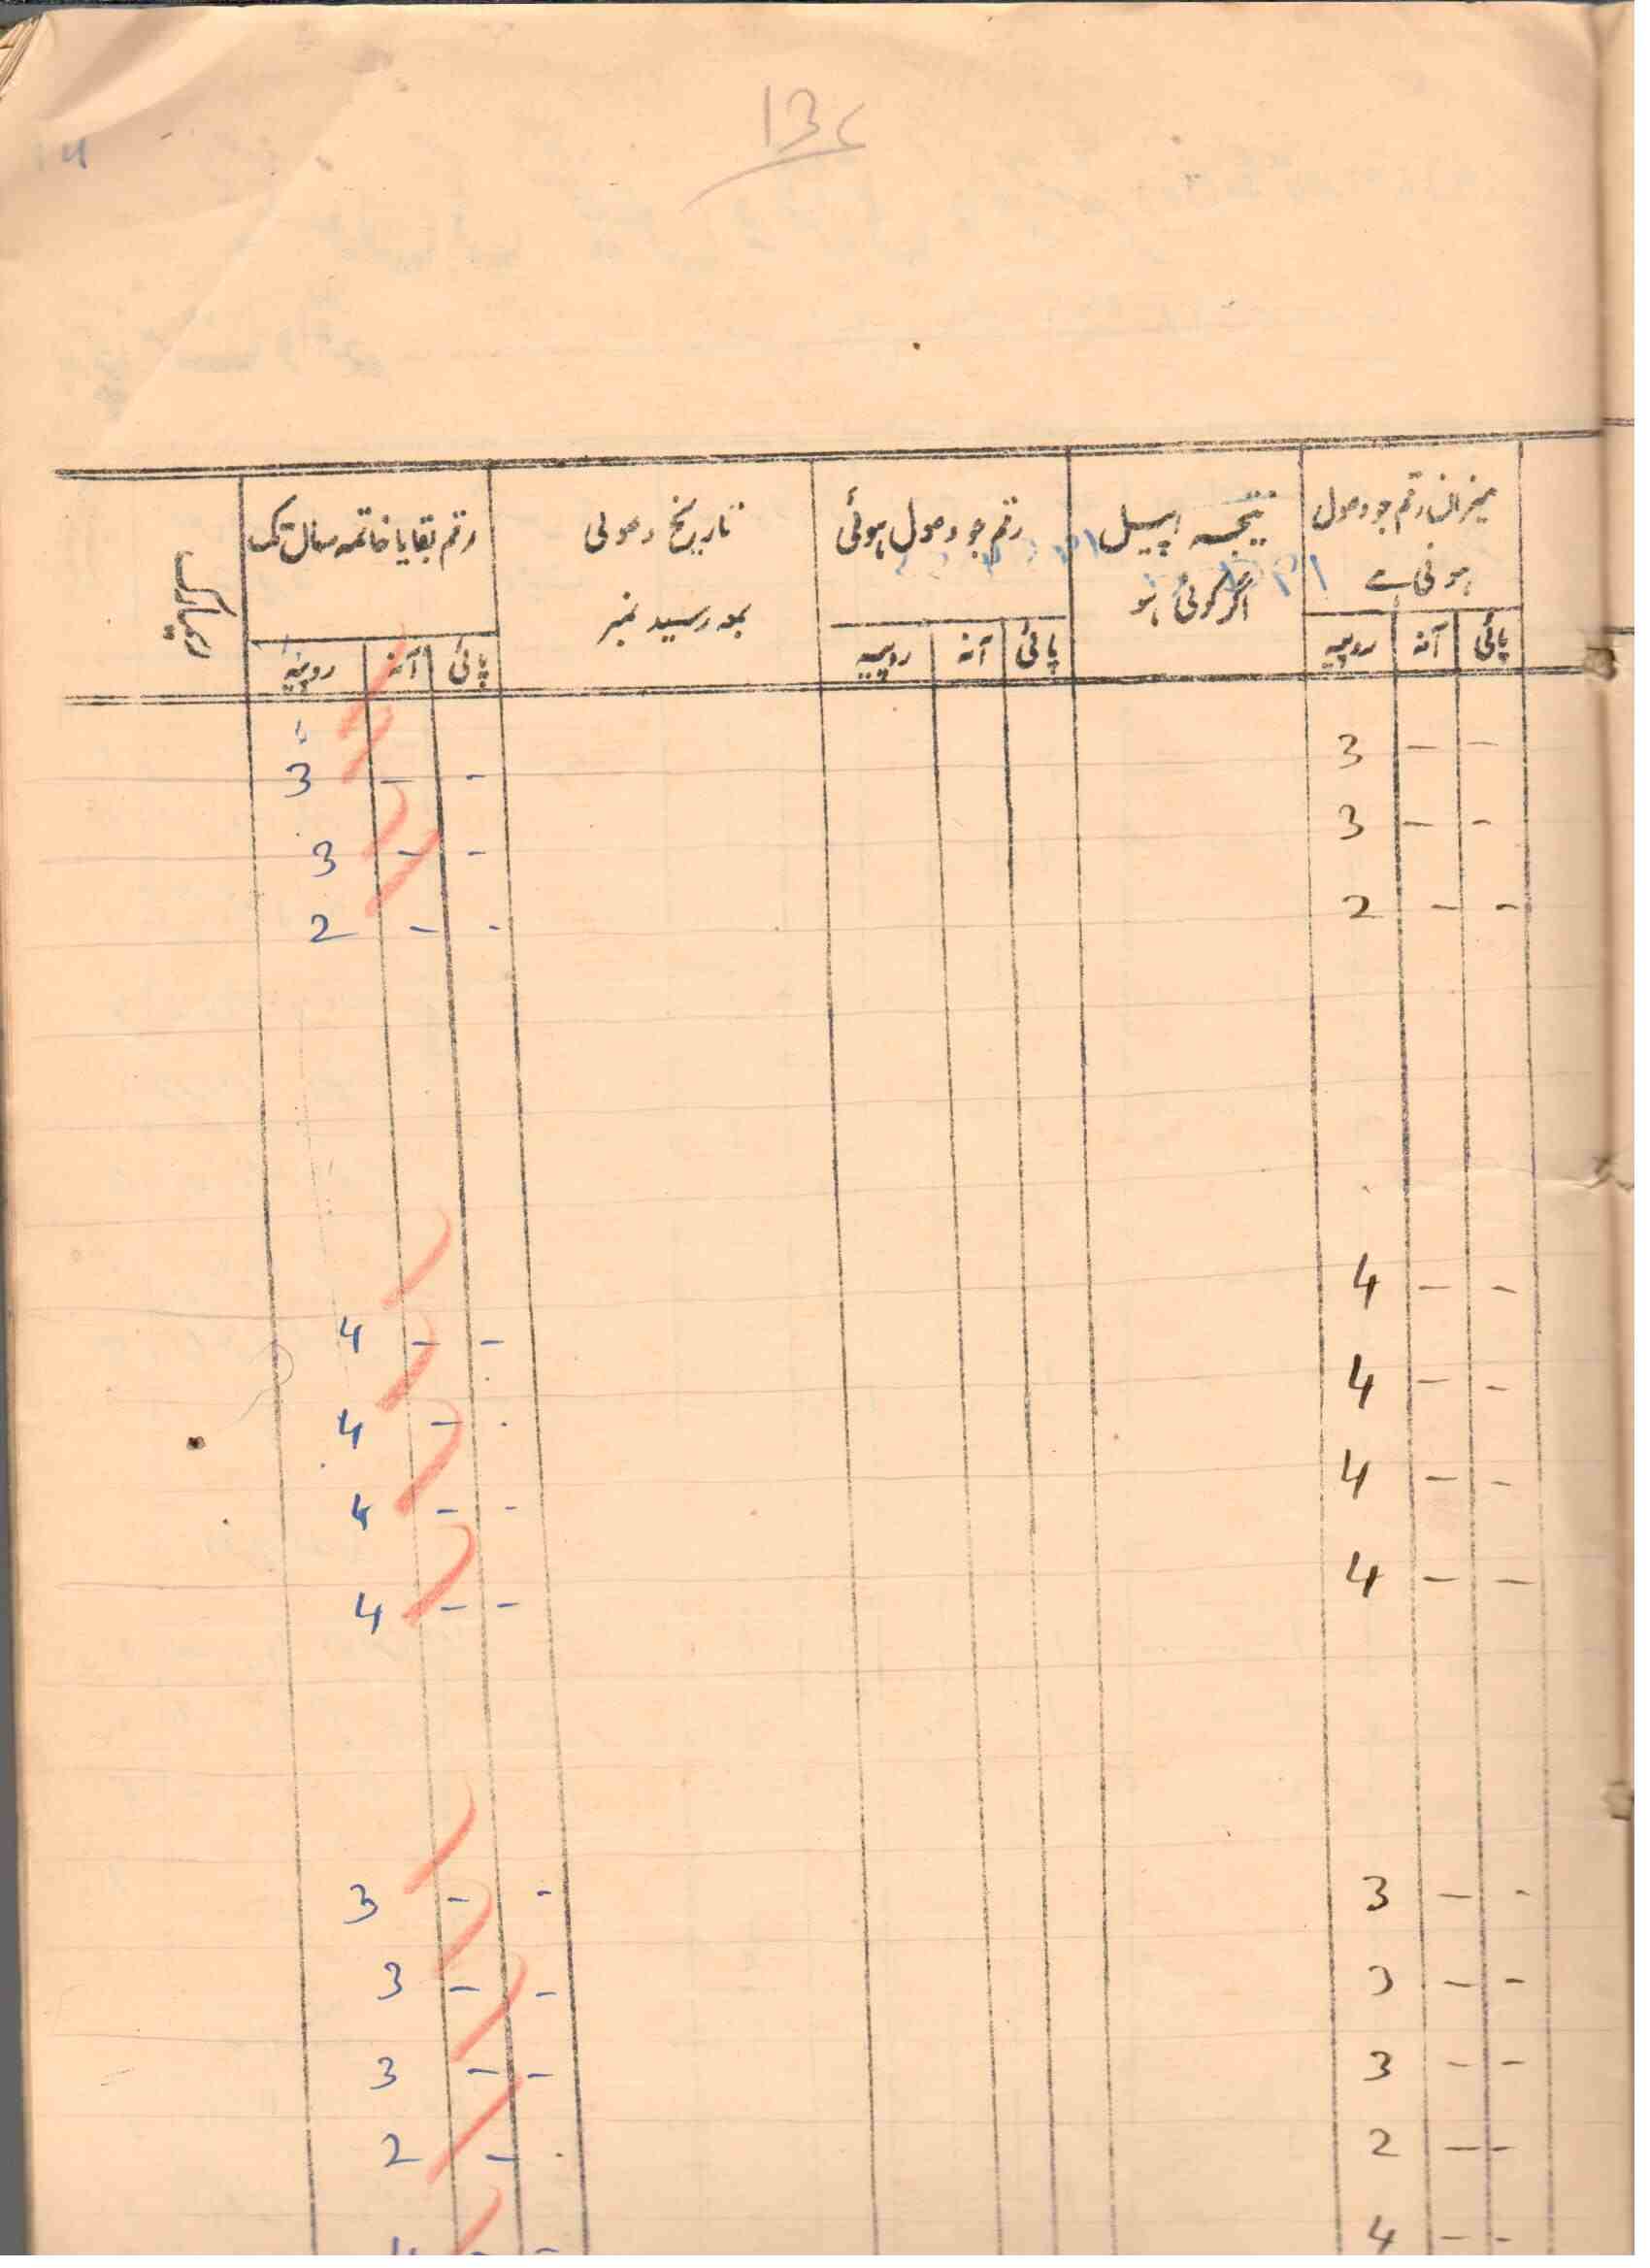 13
میزان رقم جو وصول ہونی ہے
نتیجہ اپیل اگر کوئی ہو
رقم جو وصول ہوئی
تاریخ وصولی بمعہ رسید نمبر
رقم بقایا خاتمہ سال تک
ریمارکس
پائی آنہ روپیہ پائی آنہ روپیہ پائی آنہ روپیہ
3 - - 3 - -
3 - - 3 - -
2 - - 2 - -
4 - - 4 - -
4 - - 4 - -
4 - - 4 - -
4 - - 4 - -
3 - - 3 - -
3 - - 3 - -
3 - - 3 - -
2 - - 2 - -
4 - - 4 - -